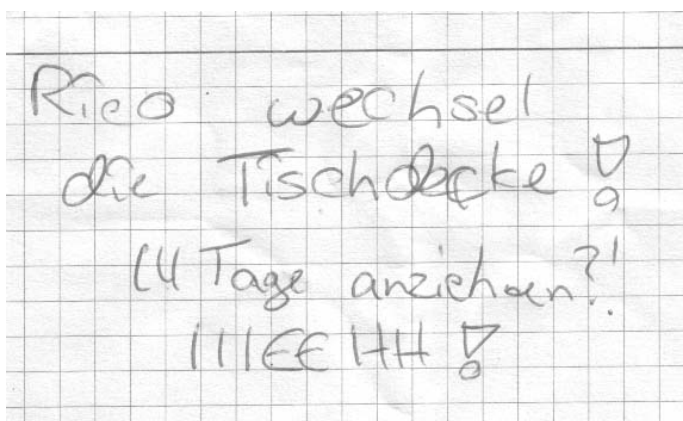 Rico wechsel
die Tischdecke!
14 Tage anziehen?!
IIIEEHH!